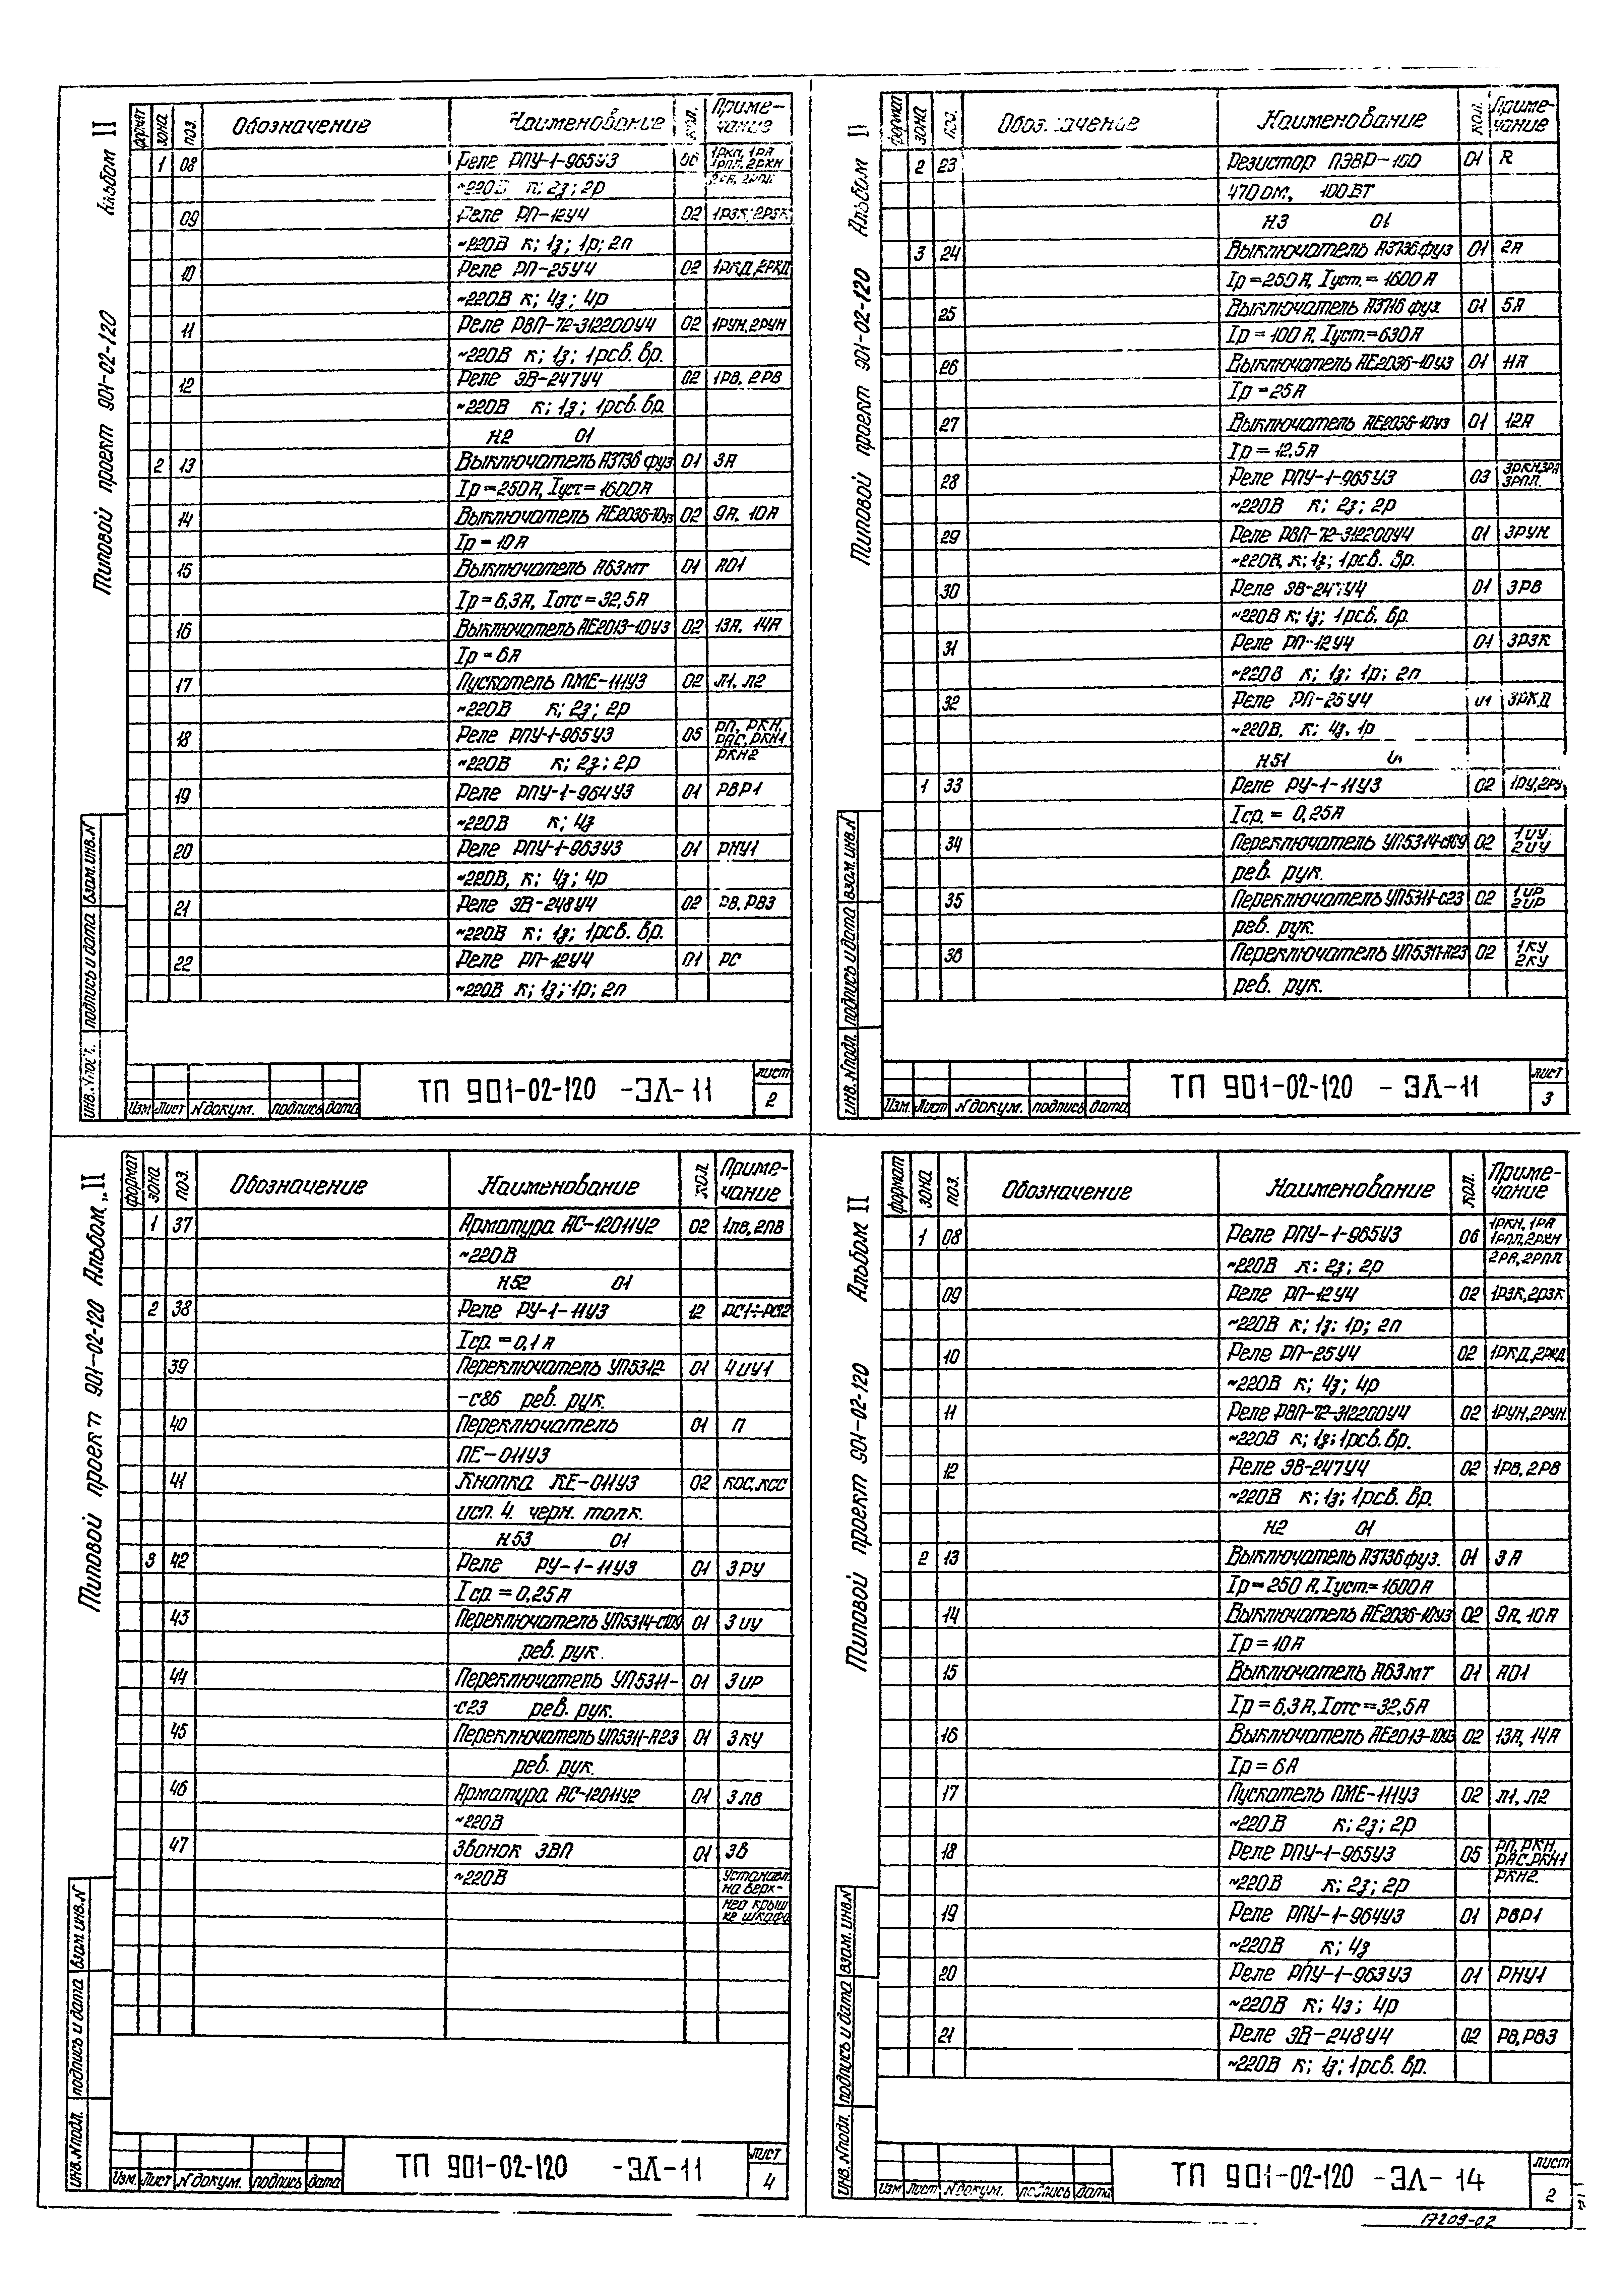 Альбом II
Типовой проект 901-02-120
формат зона поз. Обозначение Наименование кол. Приме-
чание
1 08 Реле РПУ-1-965У3 06 1РКН, 1РА
1РПЛ, 2РКН
~220В к; 2з; 2р 2РА, 2РПЛ
09 Реле РП-12У4 02 1РЗК, 2РЗК
~220В к; 1з; 1р; 2п
10 Реле РП-25У4 02 1РКД, 2РКД
~220В к; 4з; 4р
11 Реле РВП-72-31220У4 02 1РУН, 2РУН
~220В к; 1з; 1рсв. вр.
12 Реле ЭВ-247У4 02 1РВ, 2РВ
~220В к; 1з; 1рсв. вр.
Н2 01
2 13 Выключатель А3736 фуз 01 3А
Iр=250А, Iуст=1600А
14 Выключатель АЕ2036-10У3 02 9А, 10А
Iр=10А
15 Выключатель А63МТ 01 А01
Iр=6,3А, Iотс=32,5А
16 Выключатель АЕ2013-10У3 02 13А, 14А
Iр=6А
17 Пускатель ПМЕ-111У3 02 Л1, Л2
~220В к; 2з; 2р
18 Реле РПУ-1-965У3 05 РП, РКН,
РАС, РКН1
~220В к; 2з; 2р РКН2
19 Реле РПУ-1-964У3 01 РВР1
~220В к; 4з
20 Реле РПУ-1-963У3 01 РНУ1
~220В, к; 4з; 4р
21 Реле ЭВ-248У4 02 РВ, РВ3
~220В к; 1з; 1рсв. вр.
22 Реле РП-12У4 01 РС
~220В к; 1з; 1р; 2п
взам. инв. N
подпись и дата
инв. N подл.
Изм Лист N докум. подпись дата
ТП 901-02-120 -ЭЛ-11
лист
2
Альбом II
Типовой проект 901-02-120
формат зона поз. Обозначение Наименование кол. Приме-
чание
2 23 Резистор ПЭВР-100 01 R
470 Ом, 100 ВТ
Н3 01
3 24 Выключатель А3736 фуз 01 2А
Iр=250А, Iуст.=1600А
25 Выключатель А3716 фуз. 01 5А
Iр=100А, Iуст.=630А
26 Выключатель АЕ2036-10У3 01 11А
Iр=25А
27 Выключатель АЕ2036-10У3 01 12А
Iр=12.5А
28 Реле РПУ-1-965У3 03 3РКН, 3РА
3РПЛ.
~220В к; 2з; 2р
29 Реле РВП-72-31220У4 01 3РУН
~220В, к; 1з; 1рсв. вр.
30 Реле ЭВ-247У4 01 3РВ
~220В к; 1з; 1рсв. вр.
31 Реле РП-12У4 01 3РЗК
~220В к; 1з; 1р; 2п
32 Реле РП-25У4 01 3РКД
~220В, к; 4з, 1р
Н51
1 33 Реле РУ-1-11У3 02 1РУ, 2РУ
Iср.=0,25А
34 Переключатель УП5314-С109 02 1ИУ
2ИУ
рев. рук.
35 Переключатель УП5311-С23 02 1ИР
2ИР
рев. рук.
36 Переключатель УП5311-А23 02 1КУ
2КУ
рев. рук.
взам. инв. N
подпись и дата
инв. N подл.
Изм. Лист N докум. подпись дата
ТП 901-02-120 -ЭЛ-11
лист
3
Альбом II
Типовой проект 901-02-120
формат зона поз. Обозначение Наименование кол. Приме-
чание
1 37 Арматура АС-12011У2 02 1ЛВ, 2ЛВ
~220В
Н52 01
2 38 Реле РУ-1-11У3 12 РС1÷РС12
Iср.=0,1А
39 Переключатель УП5312- 01 4ИУ1
-С86 рев. рук.
40 Переключатель 01 П
ПЕ-011У3
41 Кнопка КЕ-011У3 02 КОС, КСС
исп. 4. черн. толк.
Н53 01
3 42 Реле РУ-1-11У3 01 3РУ
Iср.=0,25А
43 Переключатель УП5314-С109 01 3ИУ
рев. рук.
44 Переключатель УП5311- 01 3ИР
-С23 рев. рук.
45 Переключатель УП5311-А23 01 3КУ
рев. рук.
46 Арматура АС-12011У2 01 3ЛВ
~220В
47 Звонок ЗВП 01 Зв
~220В Установл.
на верх-
ней крыш
ке шкафа
взам. инв. N
подпись и дата
инв. N подл.
Изм. Лист N докум. подпись дата
ТП 901-02-120 -ЭЛ-11
лист
4
Альбом II
Типовой проект 901-02-120
формат зона поз. Обозначение Наименование кол. Приме-
чание
1 08 Реле РПУ-1-965У3 06 1РКН, 1РА
1РПЛ, 2РКН
~220В к; 2з; 2р 2РА, 2РПЛ
09 Реле РП-12У4 02 1РЗК, 2РЗК
~220В к; 1з; 1р; 2п
10 Реле РП-25У4 02 1РКД, 2РКД
~220В к; 4з; 4р
11 Реле РВП-72-31220У4 02 1РУН, 2РУН.
~220В к; 1з; 1рсв. вр.
12 Реле ЭВ-247У4 02 1РВ, 2РВ
~220В к; 1з; 1рсв. вр.
Н2 01
2 13 Выключатель А3736 фуз. 01 3А
Iр=250А, Iуст.=1600А
14 Выключатель АЕ2036-10У3 02 9А, 10А
Iр=10А
15 Выключатель А63МТ 01 А01
Iр=6,3А, Iотс=32,5А
16 Выключатель АЕ2013-10У3 02 13А, 14А
Iр=6А
17 Пускатель ПМЕ-111У3 02 Л1, Л2
~220В к; 2з; 2р
18 Реле РПУ-1-965У3 05 РП, РКН,
РАС, РКН1
~220В к; 2з; 2р РКН2.
19 Реле РПУ-1-964У3 01 РВР1
~220В к; 4з
20 Реле РПУ-1-963У3 01 РНУ1
~220В к; 4з; 4р
21 Реле ЭВ-248У4 02 РВ, РВ3
~220В к; 1з; 1рсв. вр.
взам. инв. N
подпись и дата
инв. N подл.
Изм Лист N докум. подпись дата
ТП 901-02-120 -ЭЛ-14
лист
2
17209-02